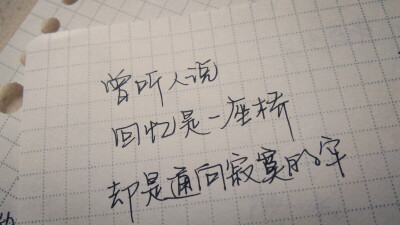 曾听人说
回忆是一座桥
却是通向寂寞的牢